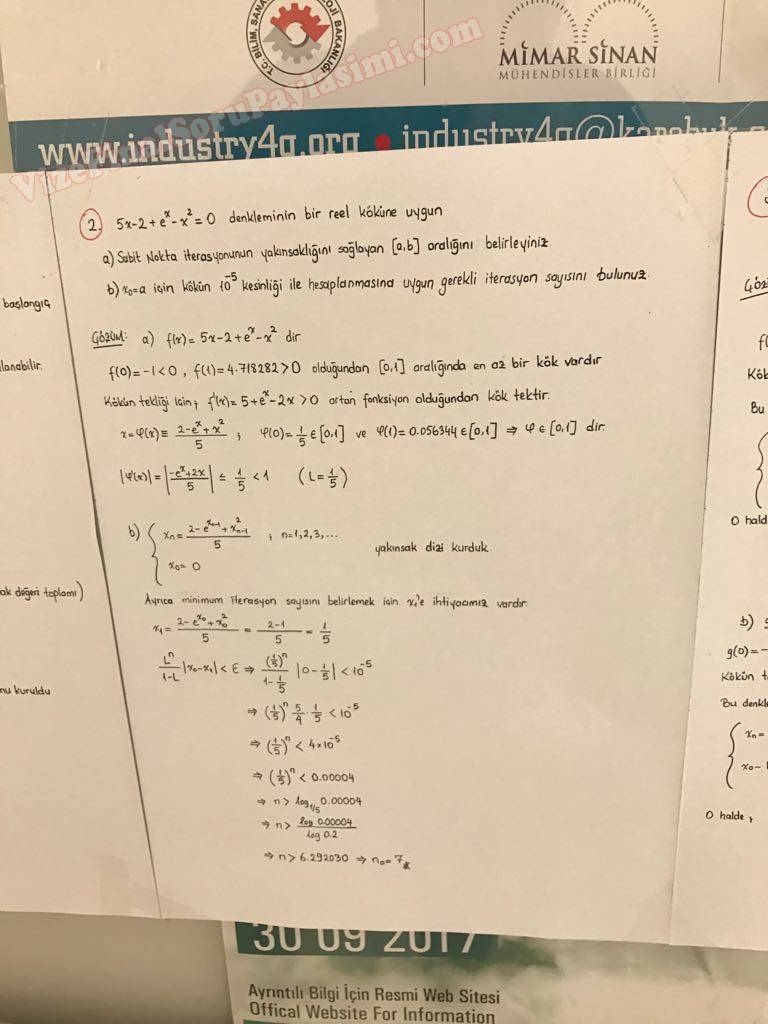 T.C. BİLİM, SANA
OLOJİ BAKANLIĞI
MİMAR SİNAN
MÜHENDİSLER BİRLİĞİ
VizeFinalSoruPaylasimi.com
www.industry4g.org • industry4g@karabuk
2. 5x-2+e^x-x^2=0 denkleminin bir reel köküne uygun
a) Sabit Nokta iterasyonunun yakınsaklığını sağlayan [a,b] aralığını belirleyiniz.
b) x₀=a için kökün 10^-5 kesinliği ile hesaplanmasına uygun gerekli iterasyon sayısını bulunuz.
Çözüm: a) f(x)= 5x-2+e^x-x^2 dir
f(0)=-1<0, f(1)=4.718282>0 olduğundan [0,1] aralığında en az bir kök vardır
Kökün tekliği için; f'(x)=5+e^x-2x>0 artan fonksiyon olduğundan kök tektir.
x=φ(x)≡ (2-e^x+x^2)/5 ; φ(0)=1/5 ∈[0,1] ve φ(1)=0.056344 ∈[0,1] ⇒ φ ∈ [0,1] dir.
|φ'(x)|=|(-e^x+2x)/5| ≤ 1/5 <1 (L=1/5)
b) { xₙ= (2-e^(xₙ₋₁)+xₙ₋₁^2)/5 , n=1,2,3,...
x₀=0
yakınsak dizi kurduk.
Ayrıca minimum iterasyon sayısını belirlemek için x₁'e ihtiyacımız vardır.
x₁= (2-e^(x₀)+x₀^2)/5 = (2-1)/5 = 1/5
L^n/(1-L) |x₀-x₁|<ε ⇒ (1/5)^n/(1-1/5) |0-1/5| <10^-5
⇒ (1/5)^n 5/4 · 1/5 <10^-5
⇒ (1/5)^n < 4×10^-5
⇒ (1/5)^n < 0.00004
⇒ n> log_(1/5) 0.00004
⇒ n> log 0.00004 / log 0.2
⇒ n>6.292030 ⇒ n₀=7
başlangıç
lanabilir.
ak değeri toplamı)
nu kuruldu
Çözü
f(
Kök
Bu
{
O hald
b) g
g(0)=-
Kökün t
Bu denkle
{ xₙ=
x₀-
O halde,
30 09 2017
Ayrıntılı Bilgi İçin Resmi Web Sitesi
Offical Website For Information